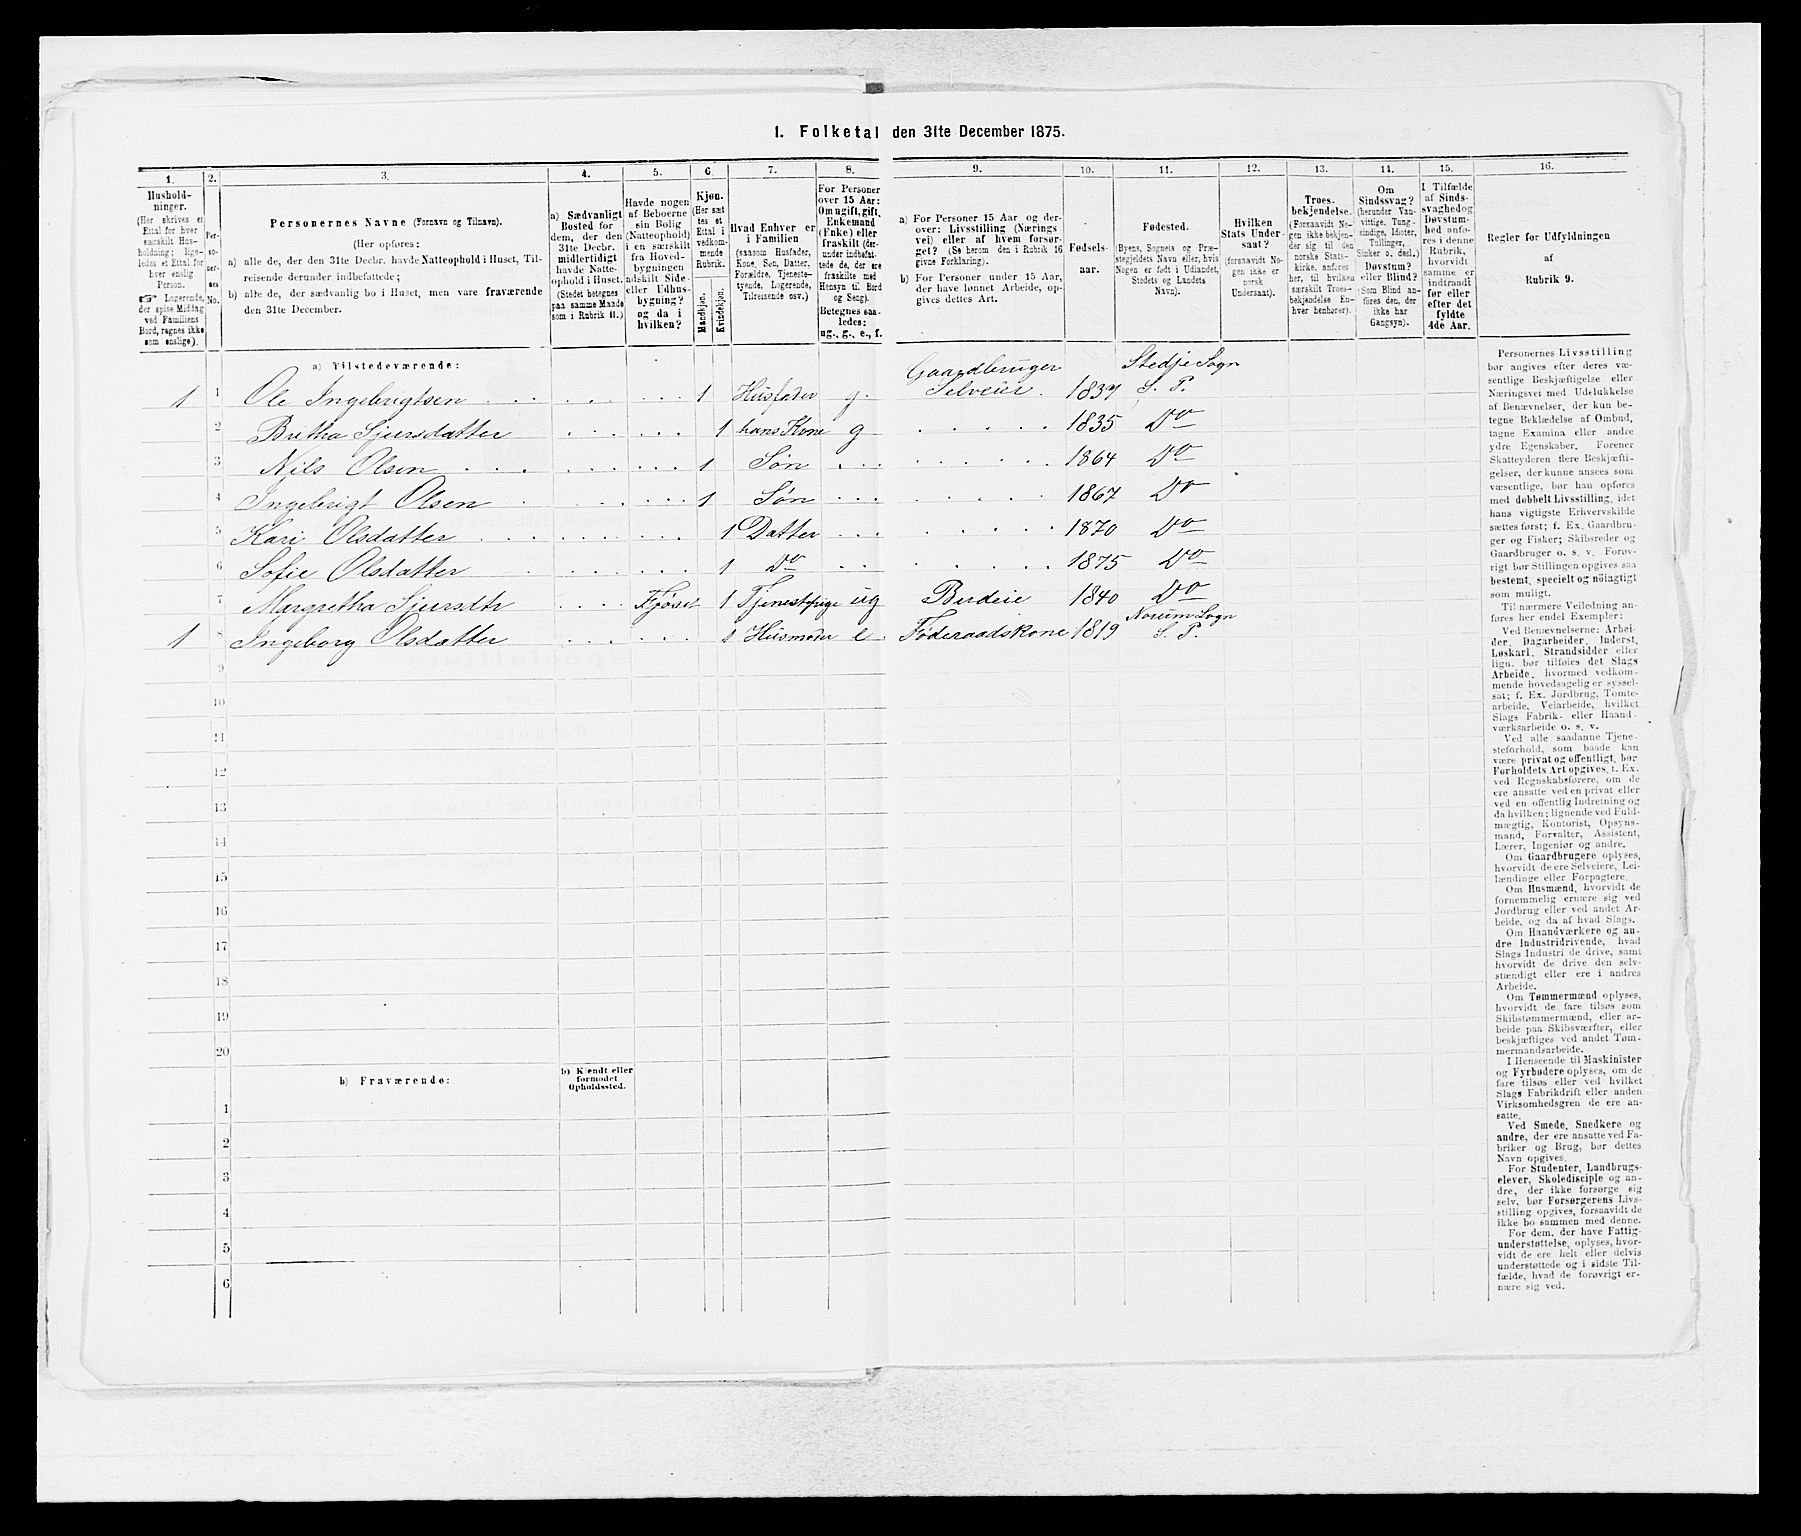 1. Folketal den 31te December 1875.
1.
2.
3.
4.
5.
6.
7.
8.
9.
10.
11.
12.
13.
14.
15.
16.
Hushold-
ninger.
(Her skrives et
Ettal for hver
særskilt Hus-
holdning; lige-
ledes et Ettal for
hver enslig
Person.
☞ Logerende,
der spise Middag
ved Familiens
Bord, regnes ikke
som enslige).
Per-
so-
ner-
nes
No.
Personernes Navne (Fornavn og Tilnavn).
(Her opføres:
a) alle de, der den 31te Decbr. havde Natteophold i Huset, Til-
reisende derunder indbefattede;
b) alle de, der sædvanlig bo i Huset, men vare fraværende
den 31te December.
a) Sædvanligt
Bosted for
dem, der den
31te Decbr.
midlertidigt
havde Natte-
ophold i Huset.
(Stedet betegnes
paa samme Maade
som i Rubrik 11.)
Havde nogen
af Beboerne
sin Bolig
(Natteophold)
i en særskilt
fra Hoved-
bygningen
adskilt Side-
eller Udhus-
bygning?
og da i
hvilken?
Kjøn.
(Her sæt-
tes et
Ettal i
vedkom-
mende
Rubrik.
Mandkjøn.
Kvindekjøn.
Hvad Enhver er
i Familien
(saasom Husfader,
Kone, Søn, Datter,
Forældre, Tjeneste-
tyende, Logerende,
Tilreisende osv.)
For Personer
over 15 Aar:
Om ugift, gift,
Enkemand
(Enke) eller
fraskilt (der-
under indbefat-
tede de, der ere
fraskilte med
Hensyn til Bord
og Seng).
Betegnes saa-
ledes:
ug., g., e., f.
a) For Personer 15 Aar og der-
over: Livsstilling (Nærings-
vei) eller af hvem forsør-
get? (Se herom den i Rubrik 16
givne Forklaring).
b) For Personer under 15 Aar,
der have lønnet Arbeide, op-
gives dettes Art.
Fødsels-
aar.
Fødested.
(Byens, Sognets og Præ-
stegjeldets Navn eller, hvis
Nogen er født i Udlandet,
Stedets og Landets
Navn).
Hvilken
Stats Under-
saat?
(forsaavidt No-
gen ikke er
norsk
Undersaat).
Troes-
bekjendelse.
(Forsaavidt No-
gen ikke bekjen-
der sig til den
norske Stats-
kirke, anføres
her, til hvilken
særskilt Troes-
bekjendelse En-
hver henhører).
Om
Sindssvag?
(herunder Van-
vittige, Tung-
sindige, Idioter,
Tullinger,
Sinker o. desl.)
Døvstum?
eller Blind?
(Som Blind an-
føres den, der
ikke har
Gangsyn).
I Tilfælde
af Sinds-
svaghed og
Døvstum-
hed anfø-
res i denne
Rubrik,
hvorvidt
samme er
indtraadt
før eller
efter det
fyldte
4de Aar.
Regler for Udfyldningen
af
Rubrik 9.
a) Tilstedeværende:
1 1 Ole Ingebrigtsen 1 Husfader g. Gaardbruger Selveier. 1837 Stedje Sogn S. P.
2 Britha Sjursdatter 1 hans Kone g 1835 Do
3 Nils Olsen 1 Søn 1864 Do
4 Ingebrigt Olsen 1 Søn 1867 Do
5 Kari Olsdatter 1 Datter 1870 Do
6 Sofie Olsdatter 1 Do 1875 Do
7 Margretha Sjursdtr Fjøset 1 Tjenestepige ug Budeie 1840 Do
1 8 Ingeborg Olsdatter 1 Husmoder e. Føderaadskone 1819 Norum Sogn S. P.
9
10
11
12
13
14
15
16
17
18
19
20
b) Fraværende:
b) Kjendt eller
formodet
Opholdssted.
1
2
3
4
5
6
Personernes Livsstilling
bør angives efter deres væ-
sentlige Beskjæftigelse eller
Næringsvei med Udelukkelse
af Benævnelser, der kun be-
tegne Beklædelse af Ombud,
tagne Examina eller andre
ydre Egenskaber. Forener
Skatteyderen flere Beskjæfti-
gelser, der kunne ansees som
væsentlige, bør han opføres
med dobbelt Livsstilling, idet
hans vigtigste Erhvervskilde
sættes først; f. Ex. Gaardbru-
ger og Fisker; Skibsreder og
Gaardbruger o. s. v. Forøv-
rigt bør Stillingen opgives saa
bestemt, specielt og nöiagtigt
som muligt.
Til nærmere Veiledning an-
føres her endel Exempler:
Ved Benævnelserne: Arbei-
der, Dagarbeider, Inderst,
Løskarl, Strandsidder eller
lign. bør tilføies det Slags
Arbeide, hvormed vedkom-
mende hovedsagelig er syssel-
sat; f. Ex. Jordbrug, Tomte-
arbeide, Veiarbeide, hvilket
Slags Fabrik- eller Haand-
værksarbeide o. s. v.
Ved alle saadanne Tjene-
steforhold, som baade kan
være privat og offentligt, bør
Forholdets Art opgives, t. Ex.
ved Regnskabsførere, om de
ere ansatte ved en privat eller
ved en offentlig Indretning og
da hvilken; lignende ved Fuld-
mægtig, Kontorist, Opsyns-
mand, Forvalter, Assistent,
Lærer, Ingeniør og andre.
Om Gaardbrugere oplyses,
hvorvidt de ere Selveiere, Lei-
lændinge eller Forpagtere.
Om Husmænd, hvorvidt de
fornemmelig ernære sig ved
Jordbrug eller ved andet Ar-
beide, og da af hvad Slags.
Om Haandværkere og an-
dre Industridrivende, hvad
Slags Industri de drive, samt
hvorvidt de drive den selv-
stændigt eller ere i andres
Arbeide.
Om Tømmermænd oplyses,
hvorvidt de fare tilsøs som
Skibstømmermænd, eller ar-
beide paa Skibsværfter, eller
beskjæftiges ved andet Tøm-
mermandsarbeide.
I Henseende til Maskinister
og Fyrbødere oplyses, om de
fare tilsøs eller ved hvilket
Slags Fabrikdrift eller anden
Virksomhedsgren de ere an-
satte.
Ved Smede, Snedkere og
andre, der ere ansatte ved Fa-
briker og Brug, bør dettes
Navn opgives.
For Studenter, Landbrugs-
elever, Skoledisciple og an-
dre, der ikke forsørge sig
selv, bør Forsørgerens Livs-
stilling opgives, forsaavidt de
ikke bo sammen med denne.
For dem, der have Fattig-
understøttelse, oplyses, hvor-
vidt de ere helt eller delvis
understøttede og i sidste Til-
fælde, hvad de forøvrigt er-
nære sig ved.